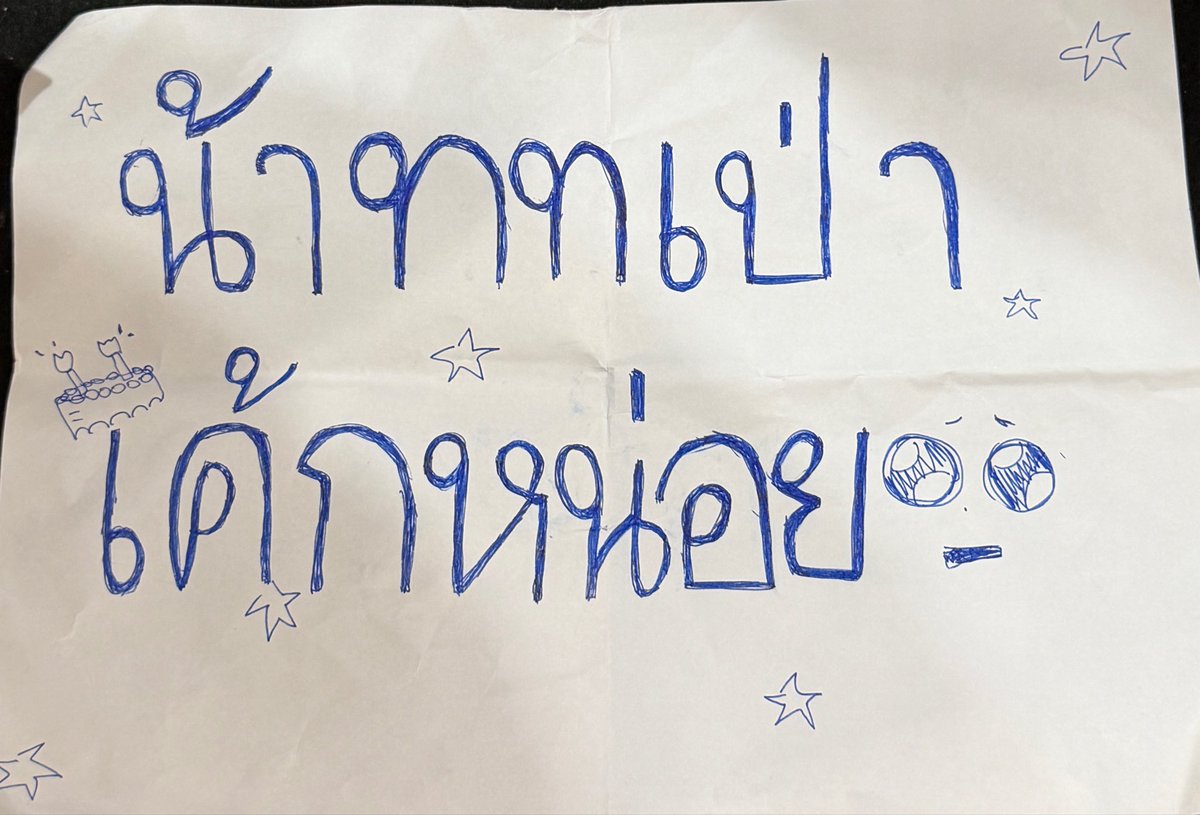 น้าททเป่า
เค้กหน่อย